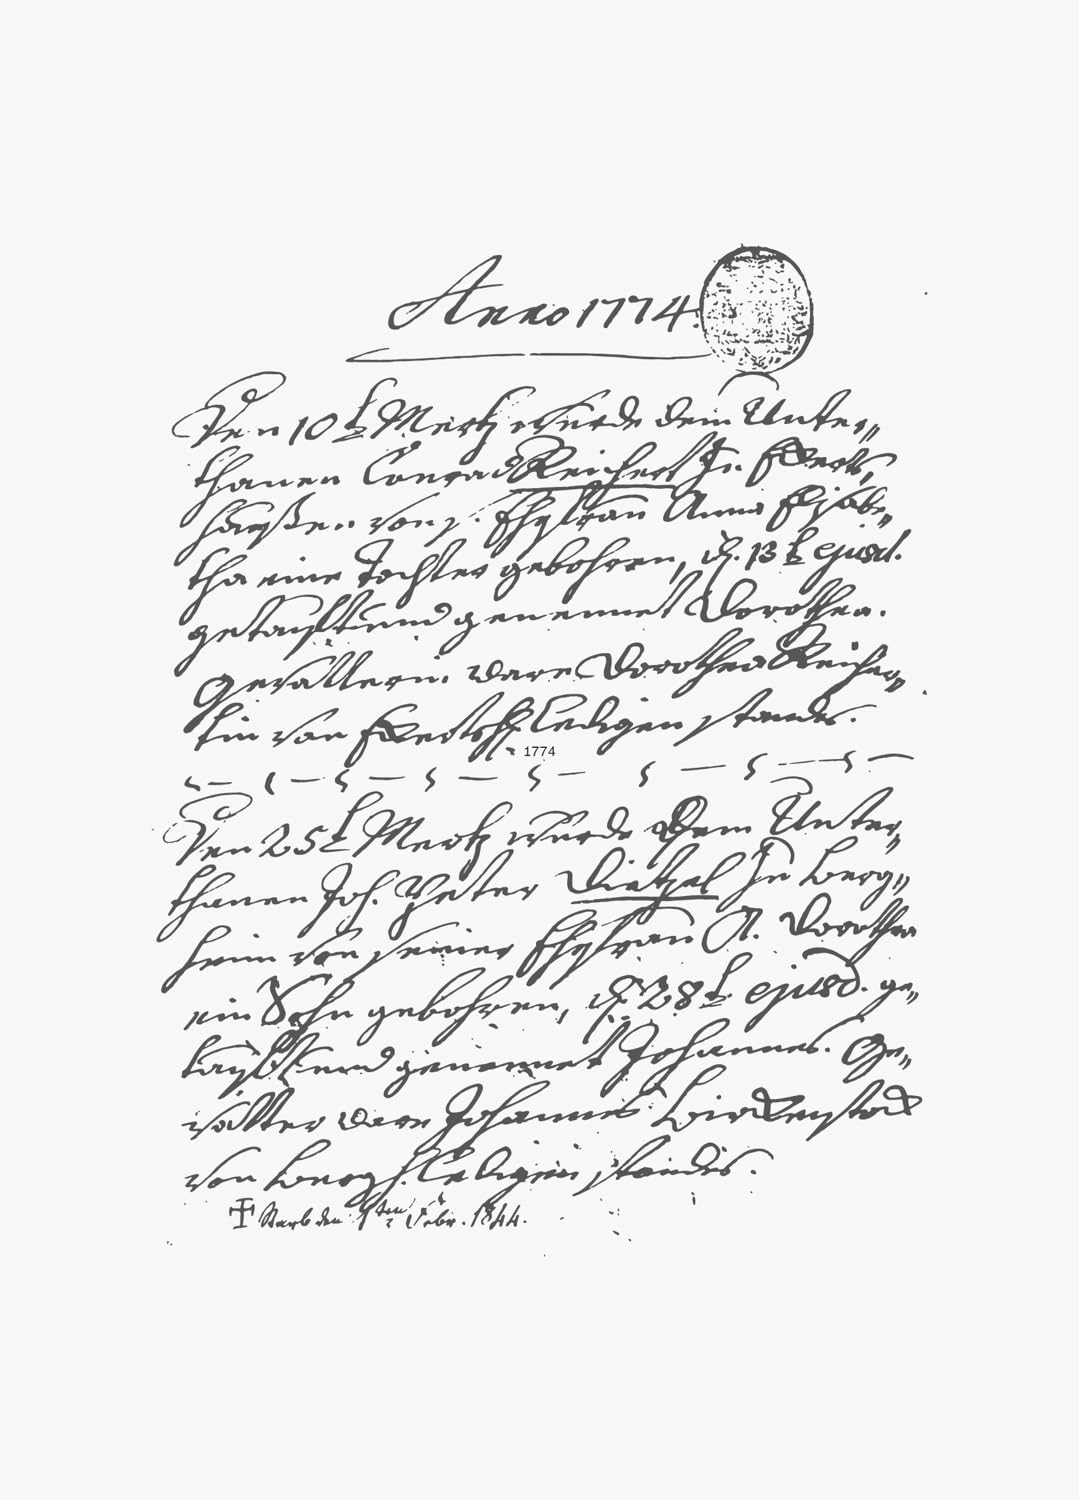 Anno 1774.
Den 10t Mertz wurde dem Unter„
thanen Conrad Reichert zu
von s. Ehefrau Anna Elisabe„
tha eine Tochter gebohren, d. 13t ejusd.
getauft und genennet Dorothea.
Gevatterin ware Dorothea Reicher„
tin von ledigen standes.
1774
Den 25t Mertz wurde dem Unter„
thanen Joh. Peter Dietzel zu Berg„
heim von seiner Ehefrau A. Dorothea
ein Sohn gebohren, d. 28t ejusd. ge„
tauft und genennet Johannes. Ge„
vatter ware Johannes Birckenstock
von Bergh. ledigen standes.
Starb den Febr. 1844.